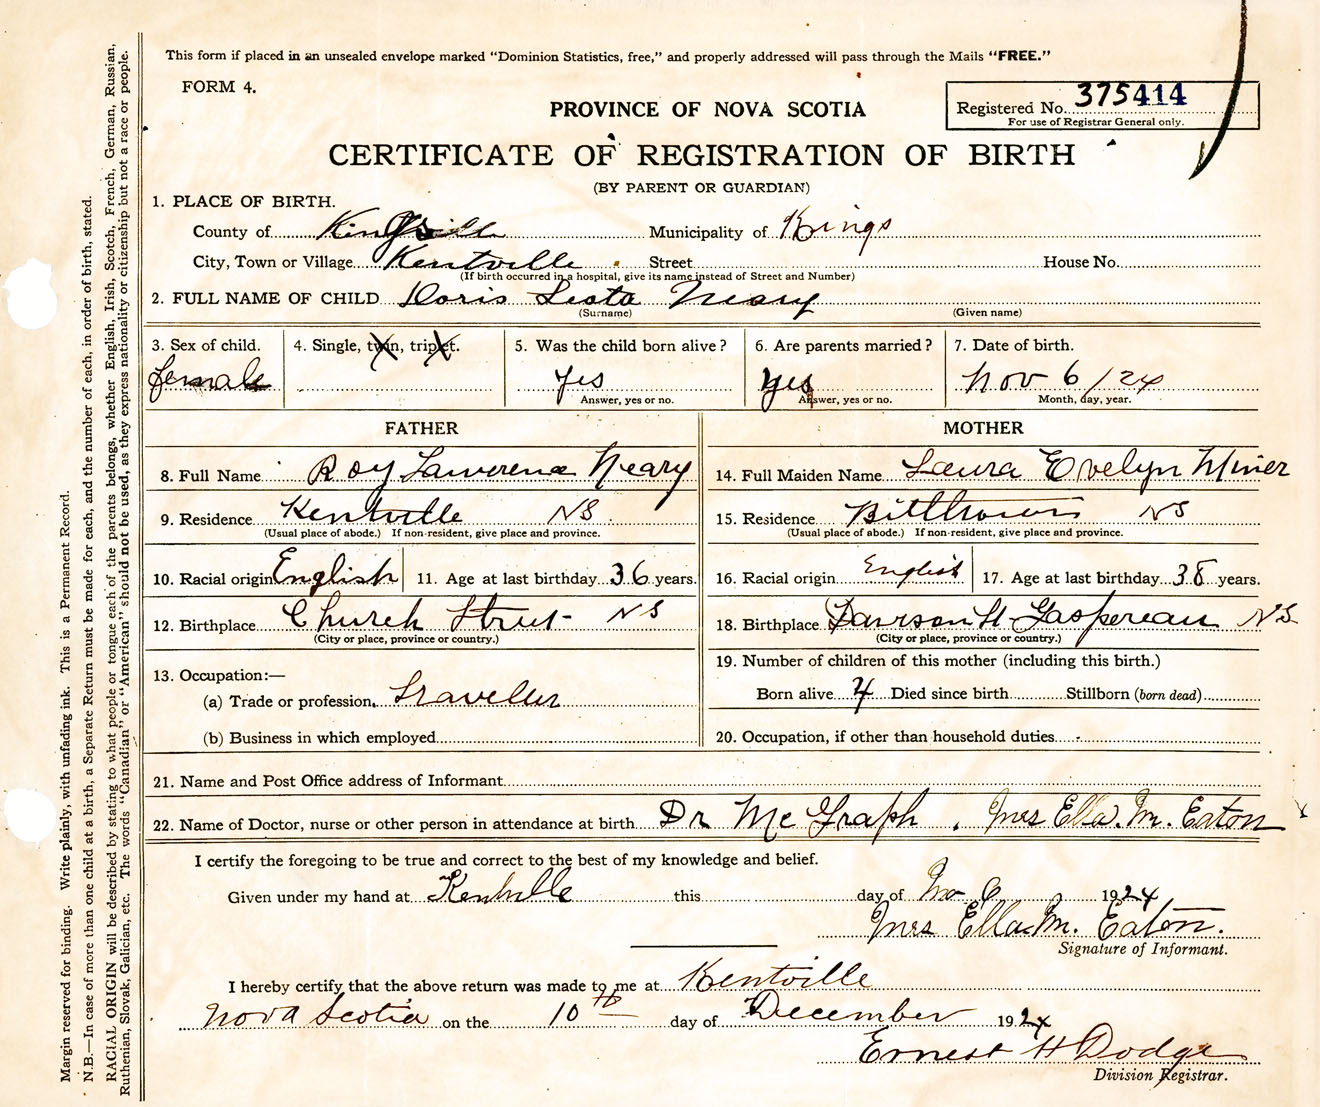 This form if placed in an unsealed envelope marked "Dominion Statistics, free," and properly addressed will pass through the Mails "FREE."
FORM 4.
Registered No. 375414
For use of Registrar General only.
PROVINCE OF NOVA SCOTIA
CERTIFICATE OF REGISTRATION OF BIRTH
(BY PARENT OR GUARDIAN)
1. PLACE OF BIRTH.
County of Kings Municipality of Kings
City, Town or Village Kentville Street House No.
(If birth occurred in a hospital, give its name instead of Street and Number)
2. FULL NAME OF CHILD Doris Leota Neary
(Surname) (Given name)
3. Sex of child. 4. Single, twin, triplet. 5. Was the child born alive? 6. Are parents married? 7. Date of birth.
female yes yes Nov 6/24
Answer, yes or no. Answer, yes or no. Month, day, year.
FATHER MOTHER
8. Full Name Roy Lawerence Neary 14. Full Maiden Name Laura Evelyn Miner
9. Residence Kentville NS 15. Residence Billtown NS
(Usual place of abode.) If non-resident, give place and province. (Usual place of abode.) If non-resident, give place and province.
10. Racial origin English 11. Age at last birthday 36 years. 16. Racial origin English 17. Age at last birthday 38 years.
12. Birthplace Church Street NS 18. Birthplace Gaspereau NS
(City or place, province or country.) (City or place, province or country.)
13. Occupation:— 19. Number of children of this mother (including this birth.)
(a) Trade or profession. Traveller Born alive 4 Died since birth Stillborn (born dead)
(b) Business in which employed 20. Occupation, if other than household duties
21. Name and Post Office address of Informant
22. Name of Doctor, nurse or other person in attendance at birth Dr McGraph, Mrs Ella. M. Eaton
I certify the foregoing to be true and correct to the best of my knowledge and belief.
Given under my hand at Kentville this day of Nov 6 1924
Mrs Ella M. Eaton.
Signature of Informant.
I hereby certify that the above return was made to me at Kentville
Nova Scotia on the 10th day of December 1924
Ernest H Dodge
Division Registrar.
Margin reserved for binding. Write plainly, with unfading ink. This is a Permanent Record.
N.B.—In case of more than one child at a birth, a Separate Return must be made for each, and the number of each, in order of birth, stated.
RACIAL ORIGIN will be described by stating to what people or tongue each of the parents belongs, whether English, Irish, Scotch, French, German, Russian,
Ruthenian, Slovak, Galician, etc. The words "Canadian" or "American" should not be used, as they express nationality or citizenship but not a race or people.